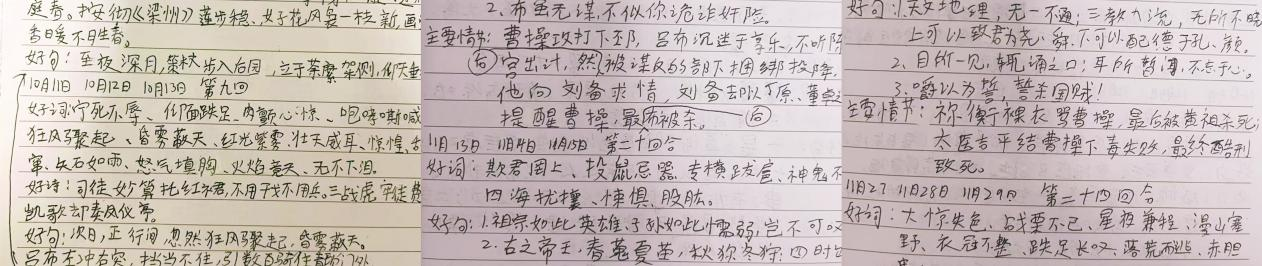 庭春。按彻《梁州》莲步稳、好花风袅一枝新，画
香日暖不胜春。
好句：至夜深月，策杖步入后园，立于荼蘼架侧，仰天垂
10月11日 10月12日 10月13日 第九回
好词：宁死不辱、仰面跌足、肉颤心惊、咆哮嘶喊
狂风骤起、昏雾蔽天、红光紫雾、壮天威耳、惊惶
窜、矢石如雨、怒气填胸、火焰竟天、无不下泪。
好诗：司徒妙算托红裙，不用干戈不用兵。三战虎牢徒费
凯歌却奏凤仪亭。
好句：次日，正行间，忽然狂风骤起，昏雾蔽天。
吕布左冲右突，拦当不住，引数百骑往青琐门外
2、布虽无谋，不似你诡诈奸险。
主要情节：曹操攻打下邳，吕布沉迷于享乐，不听陈
宫出计，然被谋反的部下捆绑投降，
他向刘备求情，刘备去以丁原、董卓
提醒曹操，最后被杀。
11月13日 11月14日 11月15日 第二十回合
好词：欺君罔上、投鼠忌器、专横跋扈、神鬼不
四海扰攘、悚惧、股肱。
好句：1.祖宗如此英雄，子孙如此懦弱，岂不可叹
2.古之帝王，春蒐夏苗，秋狝冬狩：四时出
好句：1.天文地理，无一不通；三教九流，无所不晓
上可以致君为尧、舜，下可以配德于孔、颜。
2、目所一见，辄诵之口；耳所暂闻，不忘于心。
3.嚼以为誓，誓杀国贼！
主要情节：祢衡裸衣骂曹操，最后被黄祖杀死；
太医吉平给曹操下毒失败，最终酷刑
致死。
11月27 11月28日 11月29日 第二十四回合
好词：大惊失色、战栗不已、星夜兼程、漫山塞
野、衣冠不整、跌足长叹、落荒而逃、赤胆